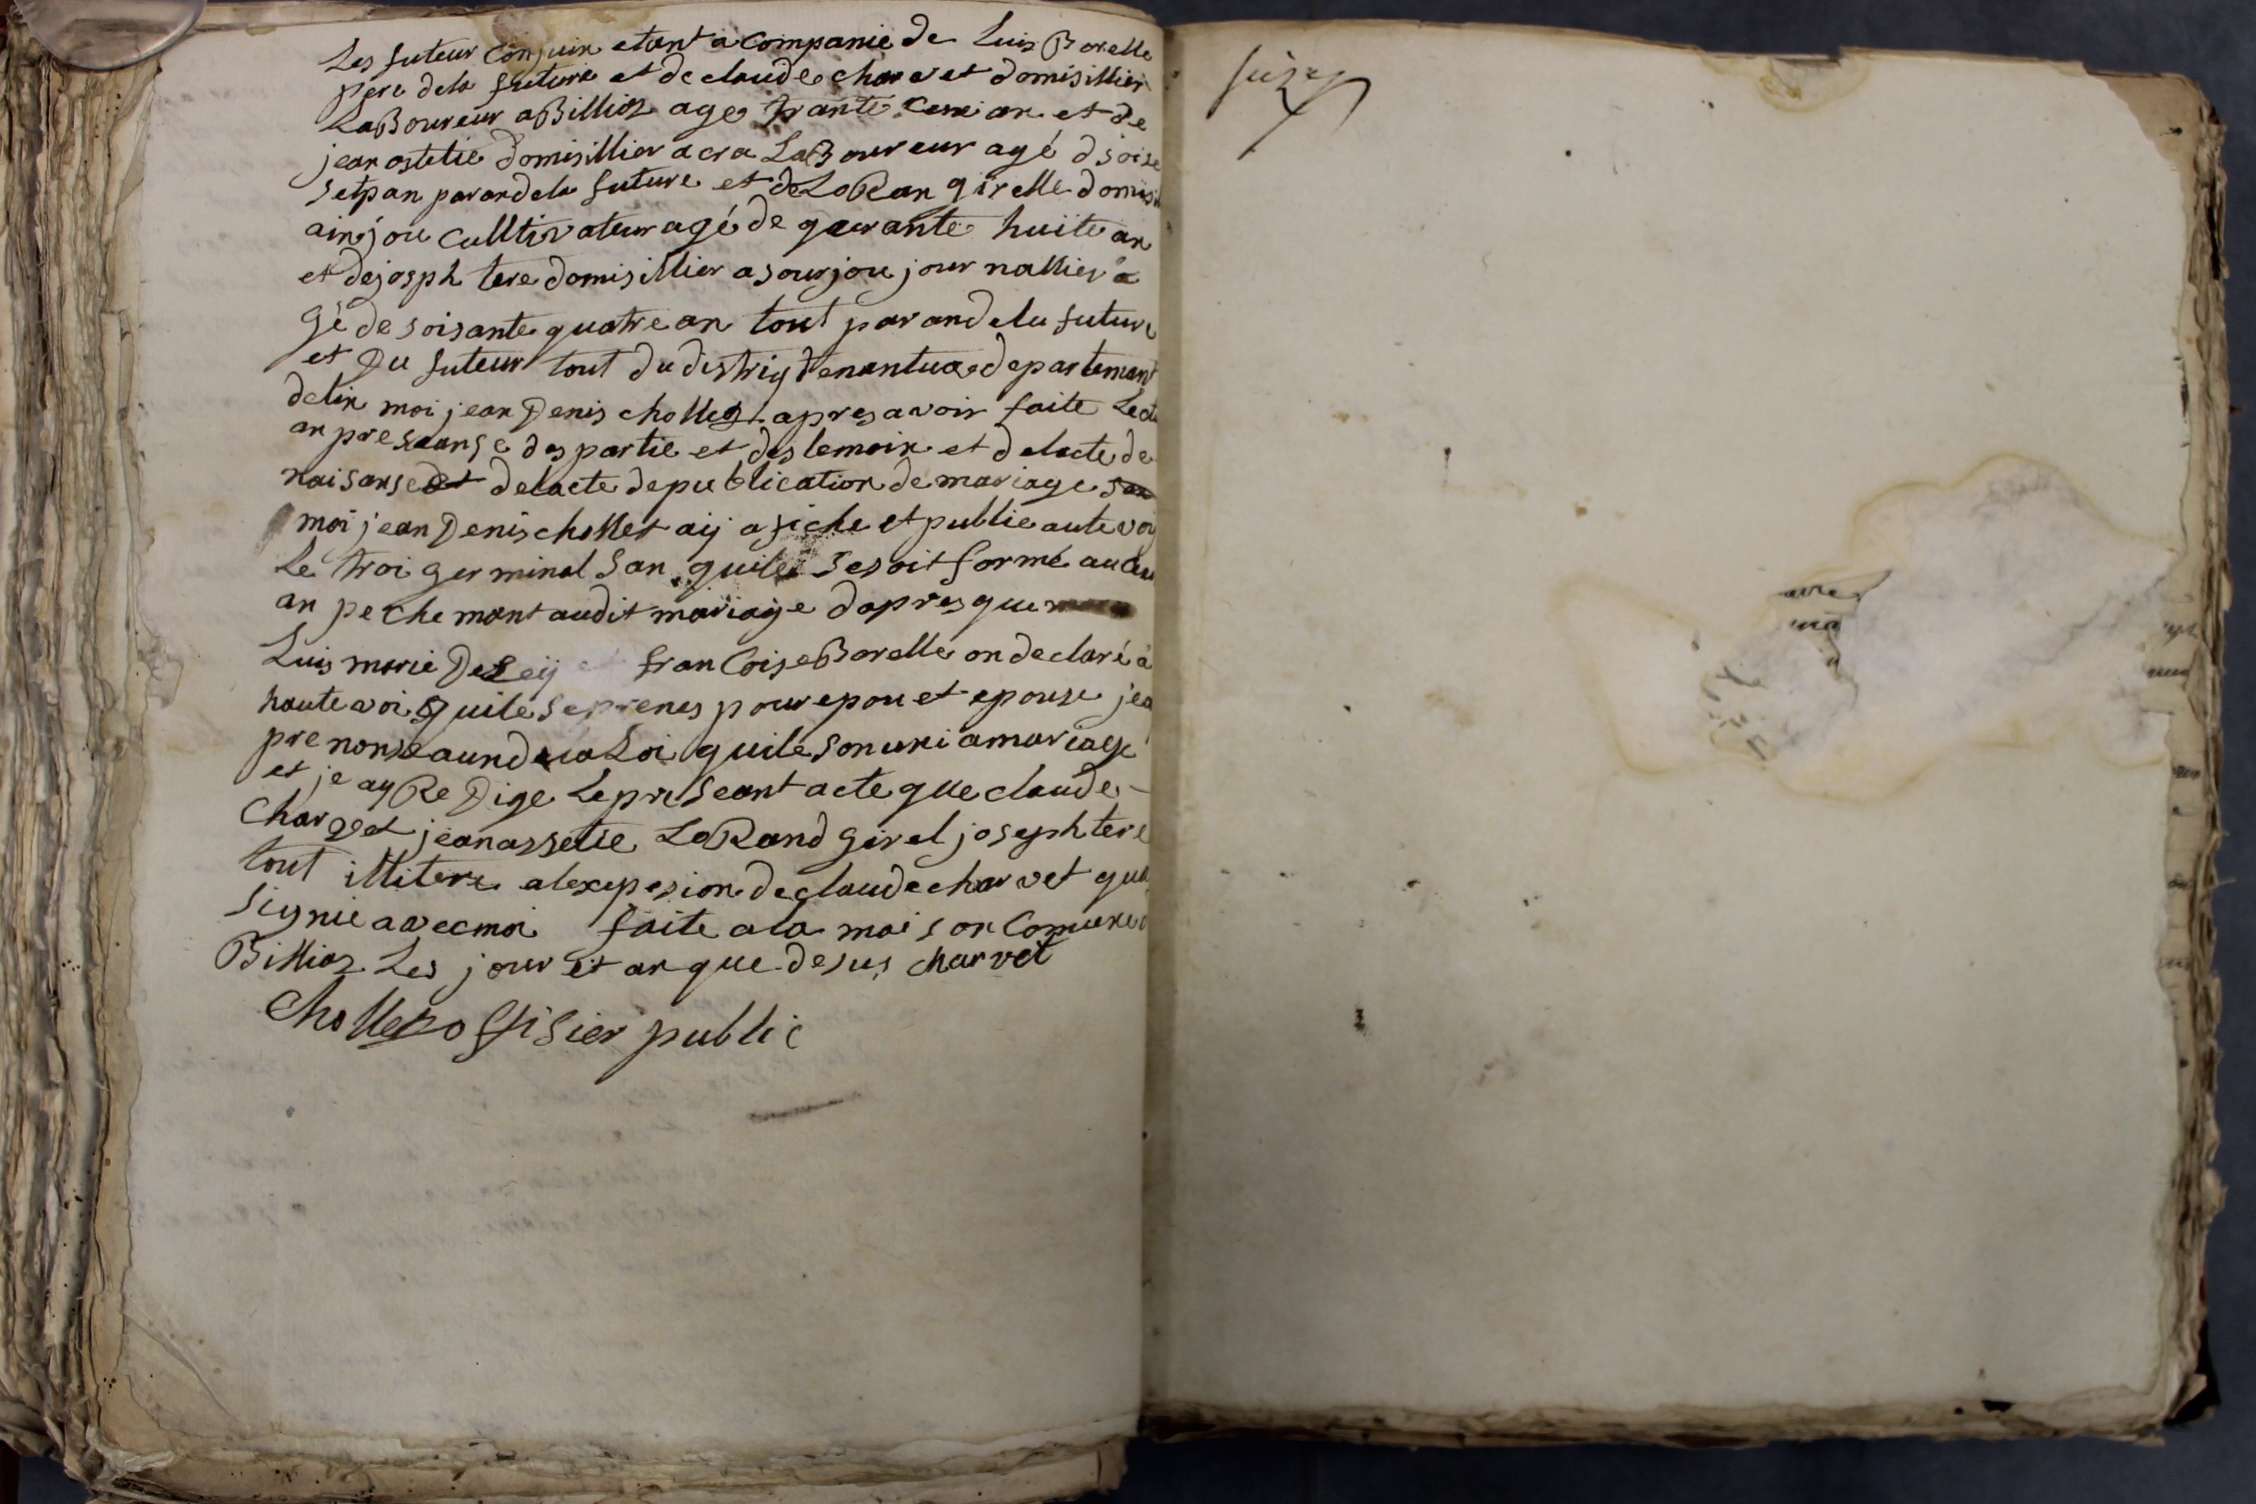 Les futeur Conjuin etant a Companie de Luis Borelle
pere dela future et de claude charvet domisillier
LaBoureur a Billioz age trante ans et de
jean ostetie domisillier a cra LaBoureur agé dsoise
setp an paran dela future et de LoRan girelle domisi
ainjou Culltivateur agé de quarante huite an
et de josph tere domisillier a sourjou journallier a
gé de soisante quatre an tout paran dela future
et Du futeur tout du distriq denantua departemant
delin moi jean Denis chollet apres avoir faite Lect
an presanse des partie et des temoin et delacte de
naisanse et delacte depublication de mariage
moi jean Denis chollet aij afiche et publie aute voi
Le troi germinal San quile Sesoit formé aucun
an pechemant audit mariage dapres que
Luis marie DeLeij et franCoise Borelle on declaré a
haute voi quile seprenes pour epou et epouse jea
prenonse aund la Loi quile son uni a mariage
et je ay ReDige Le preseant acte que claude
Charvet jean assetie LoRand girel joseph tere
tout illitere alexepsion de claude charvet qua
signie avec moi faite a la maison Comune
Billioz Les jour et an que desus charvet
Chollet offisier public